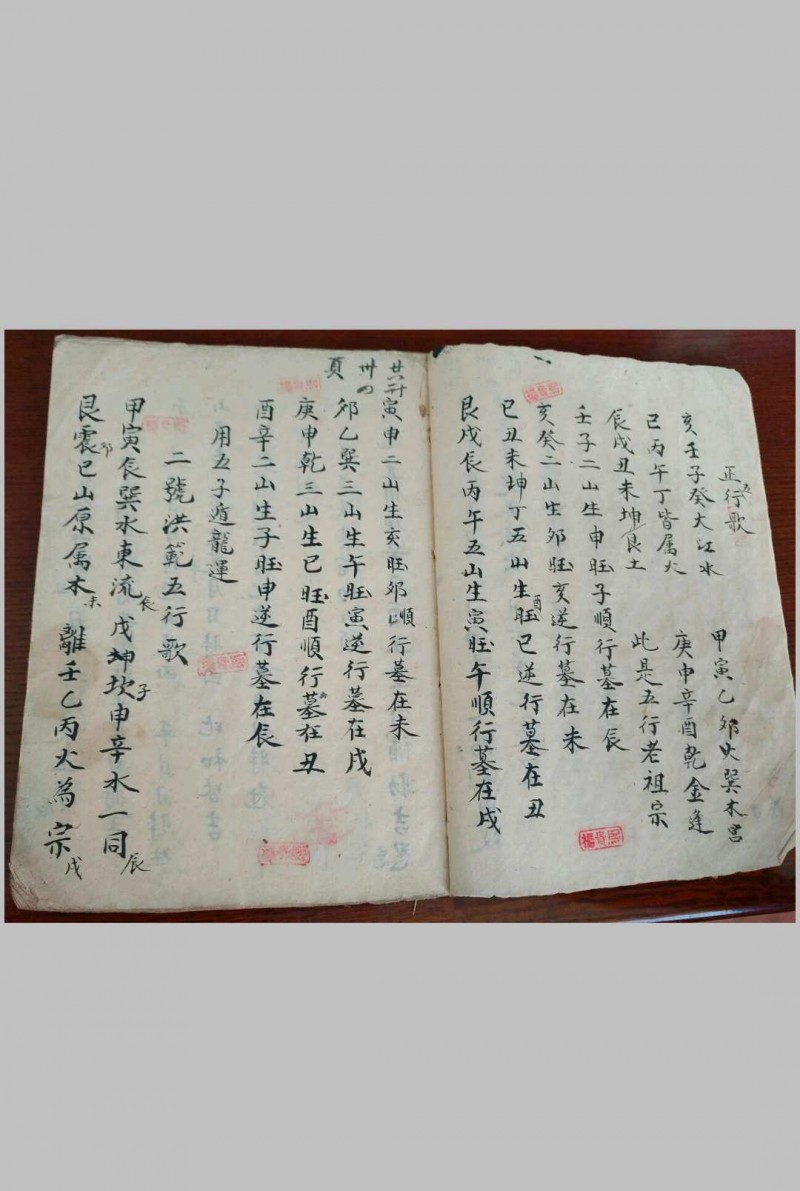 正五行歌
亥壬子癸大江水
甲寅乙夘火巽木宮
巳丙午丁皆属火
庚申辛酉乾金逢
辰戌丑未坤艮土
此是五行老祖宗
壬子二山生申旺子順行墓在辰
亥癸二山生夘旺亥逆行墓在未
巳丑未坤丁五山生酉旺巳逆行墓在丑
艮戌辰丙午五山生寅旺午順行墓在戌
寅申二山生亥旺夘順行墓在未
夘乙巽三山生午旺寅逆行墓在戌
庚申乾三山生巳旺酉順行墓在丑
酉辛二山生子旺申逆行墓在辰
用五子遁龍運
二號洪範五行歌
甲寅辰巽水東流辰戌坤坎子申辛水一同辰
艮震夘巳山原属木未離壬乙丙火為宗戌
頁